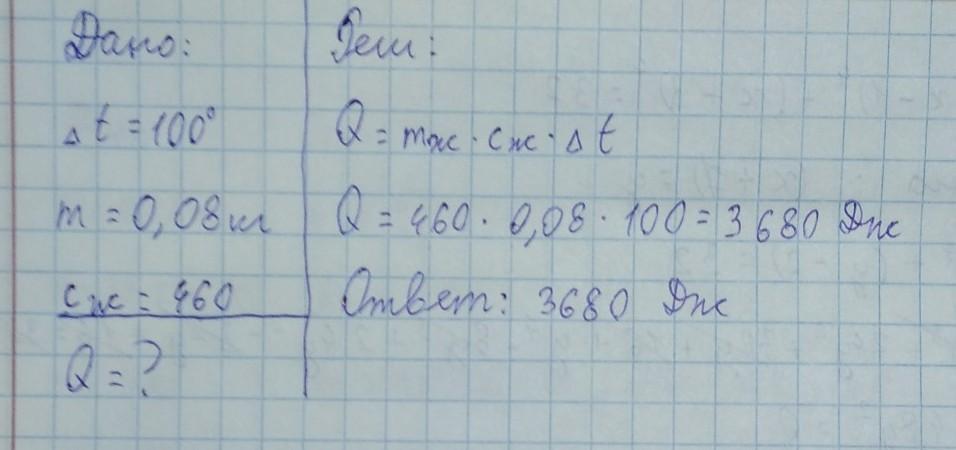 Дано:
Δt = 100°
m = 0,08 кг
сж = 460
Q = ?
Реш:
Q = mж · сж · Δt
Q = 460 · 0,08 · 100 = 3680 Дж
Ответ: 3680 Дж